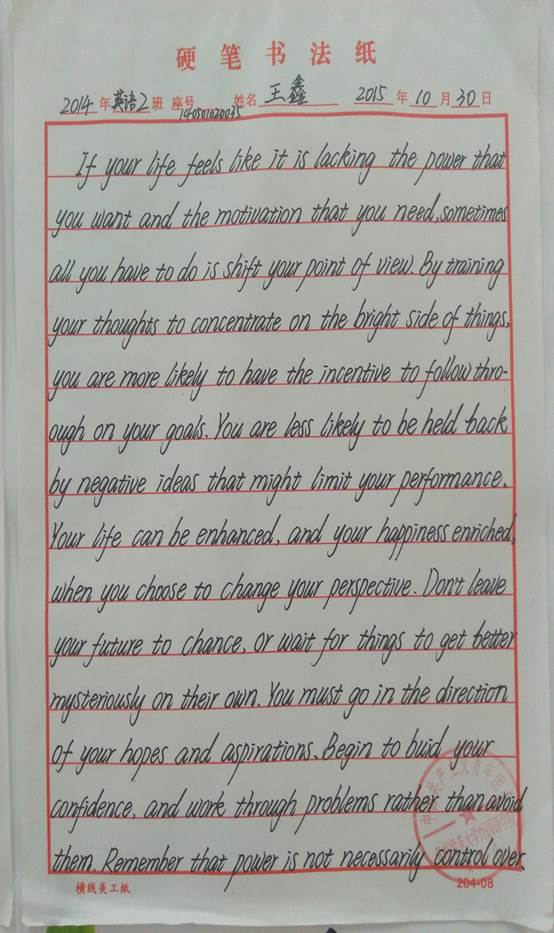 硬笔书法纸
2014年英语2班 座号 姓名 王鑫 2015年10月30日
If your life feels like it is lacking the power that
you want and the motivation that you need, sometimes
all you have to do is shift your point of view. By training
your thoughts to concentrate on the bright side of things,
you are more likely to have the incentive to follow thro-
ough on your goals. You are less likely to be held back
by negative ideas that might limit your performance.
Your life can be enhanced, and your happiness enriched,
when you choose to change your perspective. Don't leave
your future to chance, or wait for things to get better
mysteriously on their own. You must go in the direction
of your hopes and aspirations. Begin to buid your
confidence, and work through problems rather than avoid
them. Remember that power is not necessarily control over
横线美工纸 204-08